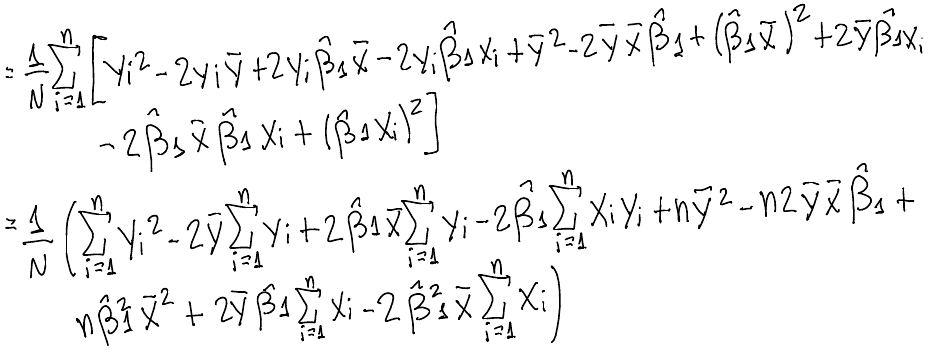 = 1/N Σ_{i=1}^{n} [ yᵢ² - 2yᵢȳ + 2yᵢβ̂₁x̄ - 2yᵢβ̂₁xᵢ + ȳ² - 2ȳx̄β̂₁ + (β̂₁x̄)² + 2ȳβ̂₁xᵢ
- 2β̂₁x̄β̂₁xᵢ + (β̂₁xᵢ)² ]
= 1/N ( Σ_{i=1}^{n} yᵢ² - 2ȳ Σ_{i=1}^{n} yᵢ + 2β̂₁x̄ Σ_{i=1}^{n} yᵢ - 2β̂₁ Σ_{i=1}^{n} xᵢyᵢ + nȳ² - n2ȳx̄β̂₁ +
nβ̂₁²x̄² + 2ȳβ̂₁ Σ_{i=1}^{n} xᵢ - 2β̂₁²x̄ Σ_{i=1}^{n} xᵢ )